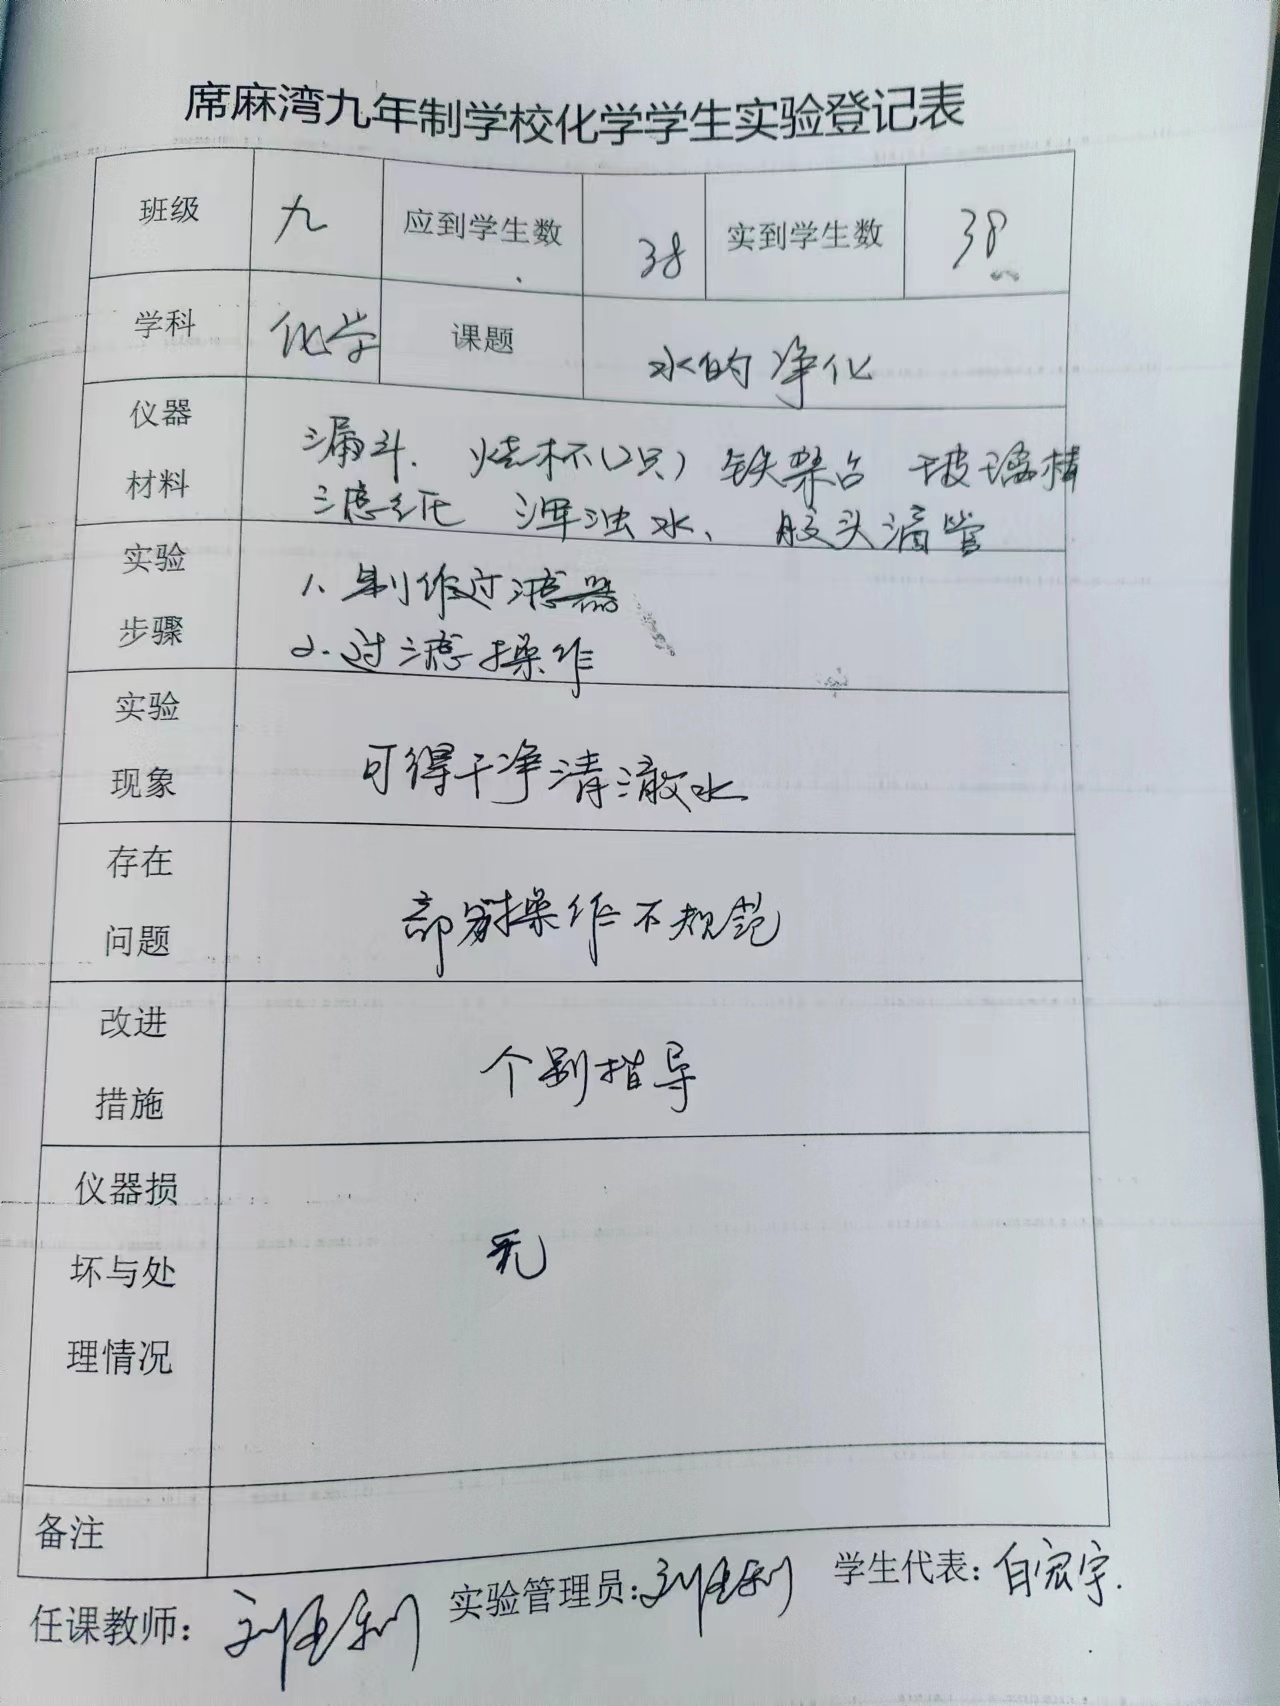 席麻湾九年制学校化学学生实验登记表
班级 九 应到学生数 38 实到学生数 38
学科 化学 课题 水的净化
仪器 漏斗. 烧杯(2只) 铁架台 玻璃棒
材料 滤纸 浑浊水、胶头滴管
实验 1. 制作过滤器
步骤 2. 过滤操作
实验
现象 可得干净清澈水
存在
问题 部分操作不规范
改进
措施 个别指导
仪器损
坏与处 无
理情况
备注
任课教师: 刘 实验管理员: 刘 学生代表: 白宏宇.